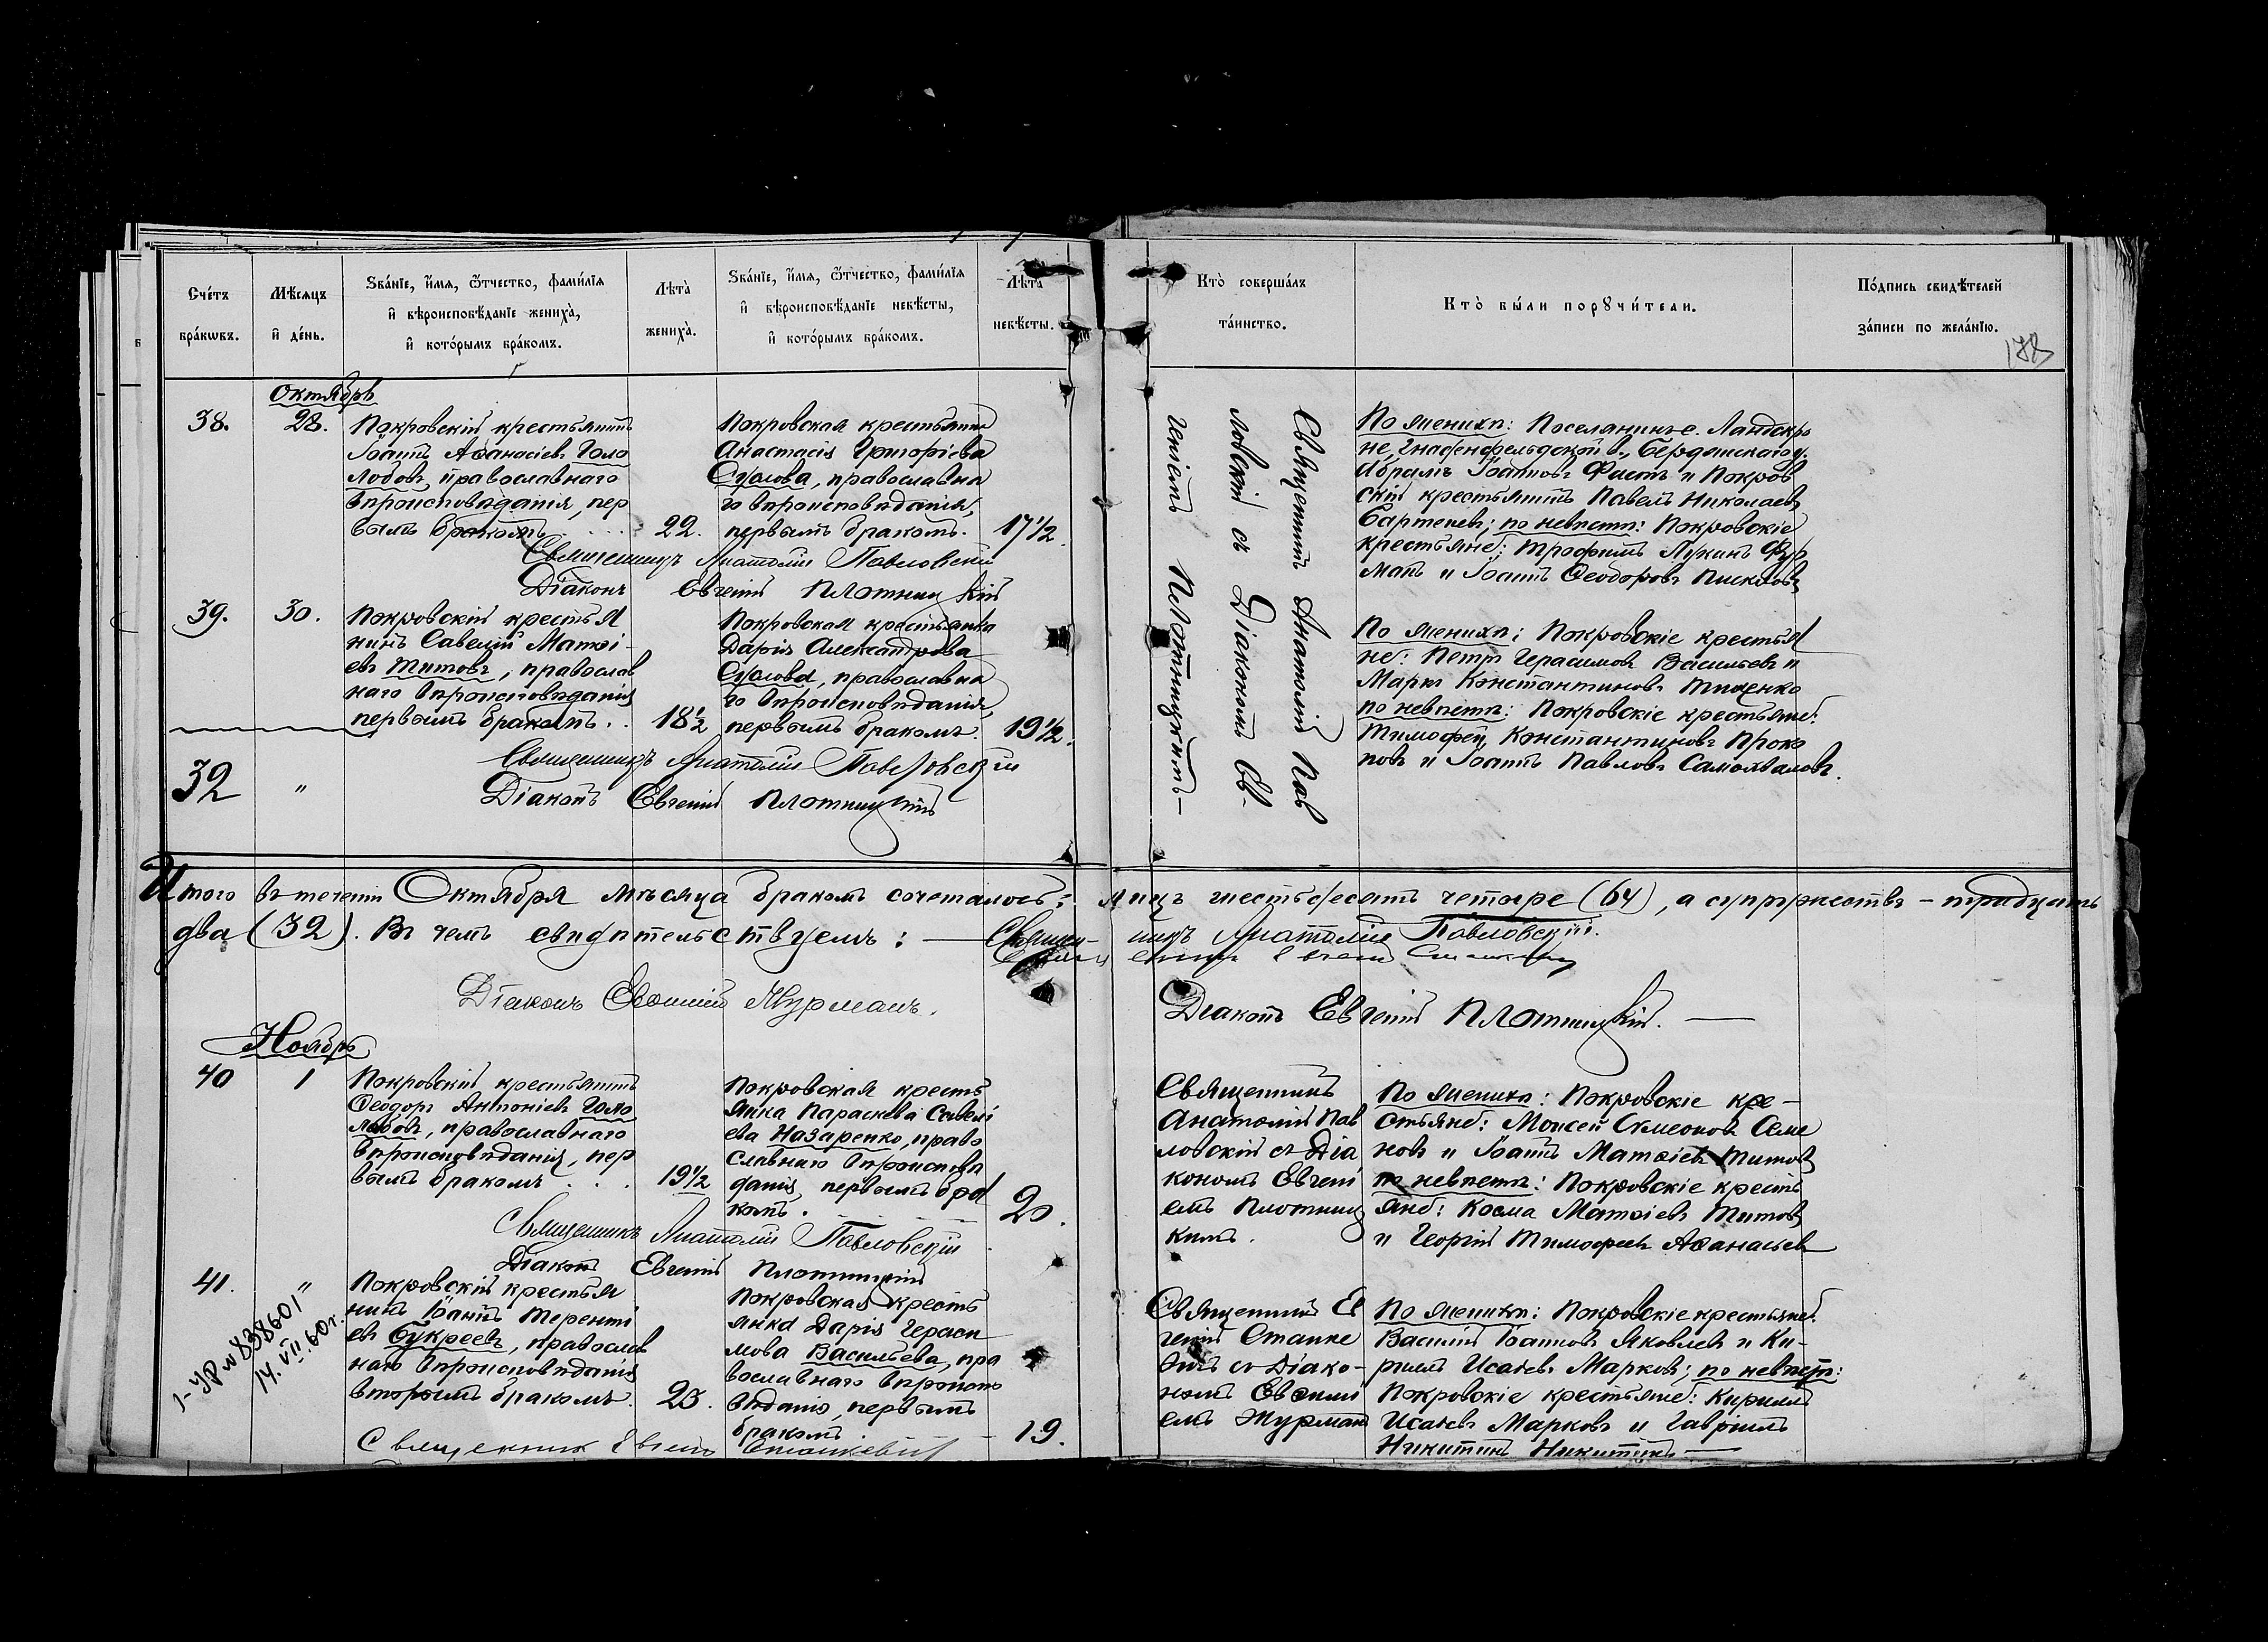 Счетъ браковъ.
Мѣсяцъ и день.
Званіе, имя, отчество, фамилія
и вѣроисповѣданіе жениха,
и которымъ бракомъ.
Лѣта жениха.
Званіе, имя, отчество, фамилія
и вѣроисповѣданіе невѣсты,
и которымъ бракомъ.
Лѣта невѣсты.
Кто совершалъ таинство.
Кто были поручители.
Подпись свидѣтелей
записи по желанію.
178
Октябрь
38.
28.
Покровскій крестьянинъ
Іоаннъ Аѳанасіевъ Голо
лобовъ, православнаго
вѣроисповѣданія, пер
вымъ бракомъ
22.
Покровская крестьянка
Анастасія Григоріева
Суслова, православна
го вѣроисповѣданія,
первымъ бракомъ.
17½.
Священникъ Анатолій Павловскій
Діаконъ Евгеній Плотницкій
Священникъ Анатолій Пав
ловскій съ Діакономъ Ев-
геніемъ Плотницкимъ—
По женихѣ: Поселянинъ с. Ландскро
не, Гнаденфельдской в., Бердянскаго у.
Абрамъ Іоанновъ Фастъ и Покров
скій крестьянинъ Павелъ Николаевъ
Бартеневъ; по невѣстѣ: Покровскіе
крестьяне: Трофимъ Лукинъ Фур
манъ и Іоаннъ Ѳеодоровъ Пискловъ
39.
30.
Покровскій крестья
нинъ Савелій Матѳі-
евъ Титовъ, православ
наго вѣроисповѣданія
первымъ бракомъ. .
18½
Покровская крестьянка
Дарія Александрова
Суслова, православна
го вѣроисповѣданія,
первымъ бракомъ.
19½.
По женихѣ: Покровскіе крестья
не: Петръ Герасимовъ Васильевъ и
Маркъ Константиновъ Тищенко
по невѣстѣ: Покровскіе крестьяне:
Тимофей Константиновъ Проко
повъ и Іоаннъ Павловъ Самохваловъ.
Священникъ Анатолій Павловскій
32
"
Діаконъ Евгеній Плотницкій
Итого въ теченіи Октября мѣсяца бракомъ сочеталось: лицъ шестьдесятъ четыре (64), а супружествъ – тридцать
два (32). Въ чемъ свидѣтельствуемъ: — Священ- никъ Анатолій Павловскій.
Священникъ Евгеній
Діаконъ Евѳимій Журманъ.
Діаконъ Евгеній Плотницкій. —
Ноябрь
40
1
Покровскій крестьянинъ
Ѳеодоръ Антоніевъ Голо
лобовъ, православнаго
вѣроисповѣданія, пер
вымъ бракомъ . . .
19½
Покровская кресть
янка Параскева Савелі
ева Назаренко, право
славнаго вѣроисповѣ
данія, первымъ бра
комъ.
20.
Священникъ
Анатолій Пав
ловскій съ Діа
кономъ Евгені
емъ Плотниц
кимъ.
По женихѣ: Покровскіе кре-
стьяне: Моисей Сѵмеоновъ Семе
новъ и Іоаннъ Матѳіевъ Титовъ
по невѣстѣ: Покровскіе кресть
яне: Косма Матѳіевъ Титовъ
и Георгій Тимофеевъ Аѳанасьевъ
Священникъ Анатолій Павловскій
Діаконъ Евгеній Плотницкій
41.
"
I-УР № 838601
14.VII.60г.
Покровскій крестья
нинъ Іоаннъ Теренті
евъ Букреевъ, православ
наго вѣроисповѣданія
вторымъ бракомъ.
23.
Покровская кресть
янка Дарія Гераси
мова Васильева, пра
вославнаго вѣроиспо
вѣданія, первымъ
бракомъ
19.
Священникъ Ев
геній Станке
вичъ съ Діако-
номъ Евѳимі
емъ Журманъ
По женихѣ: Покровскіе крестьяне:
Василій Іоанновъ Яковлевъ и Ки-
риллъ Исаіевъ Марковъ; по невѣстѣ:
Покровскіе крестьяне: Кириллъ
Исаіевъ Марковъ и Гавріилъ
Никитинъ Никитинъ —
Священникъ Евгеній Станкевичъ